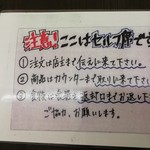 注意! ここはセルフ席です
①注文は店主まで伝えに来て下さい。
②商品はカウンターまで取りに来て下さい。
③ 返却口までお返し下
ご協力、お願いします。